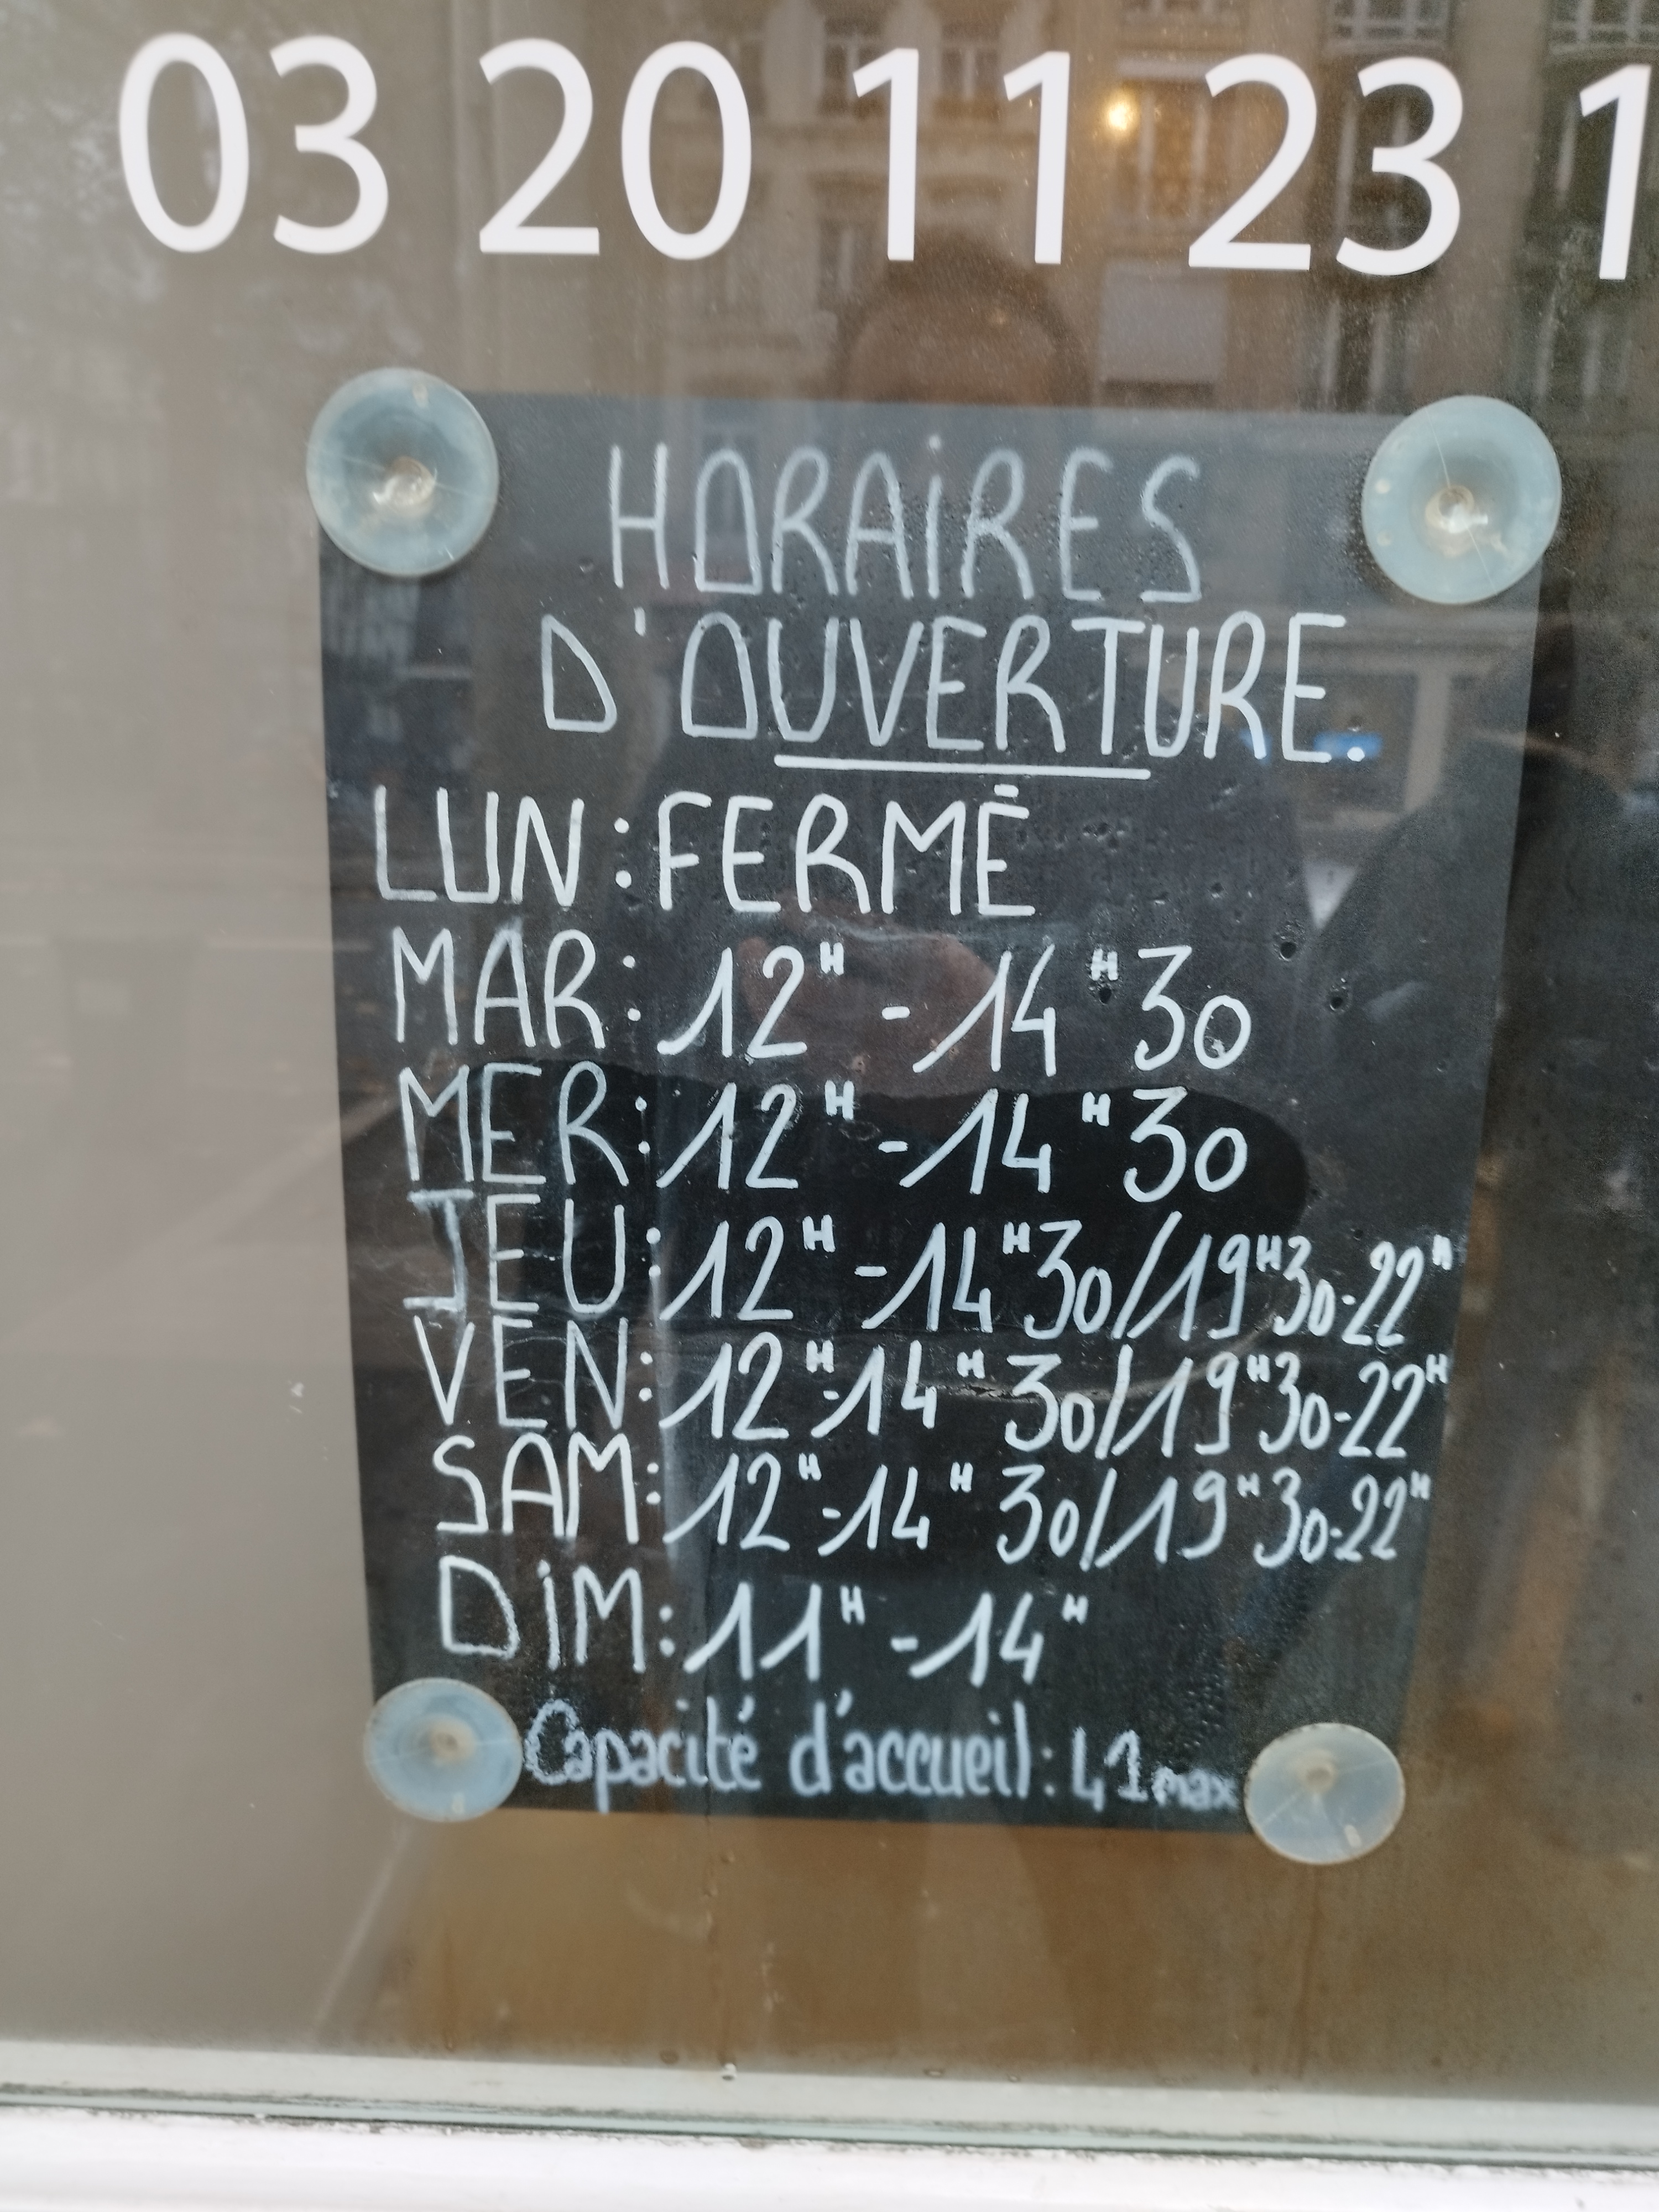 03 20 11 23 1
HORAiRES
D'OUVERTURE.
LUN : FERMÉ
MAR : 12H - 14H30
MER : 12H - 14H30
JEU : 12H - 14H30 / 19H30-22H
VEN : 12H-14H30 / 19H30-22H
SAM : 12H-14H30 / 19H30-22H
DiM : 11H - 14H
Capacité d'accueil : 41 max